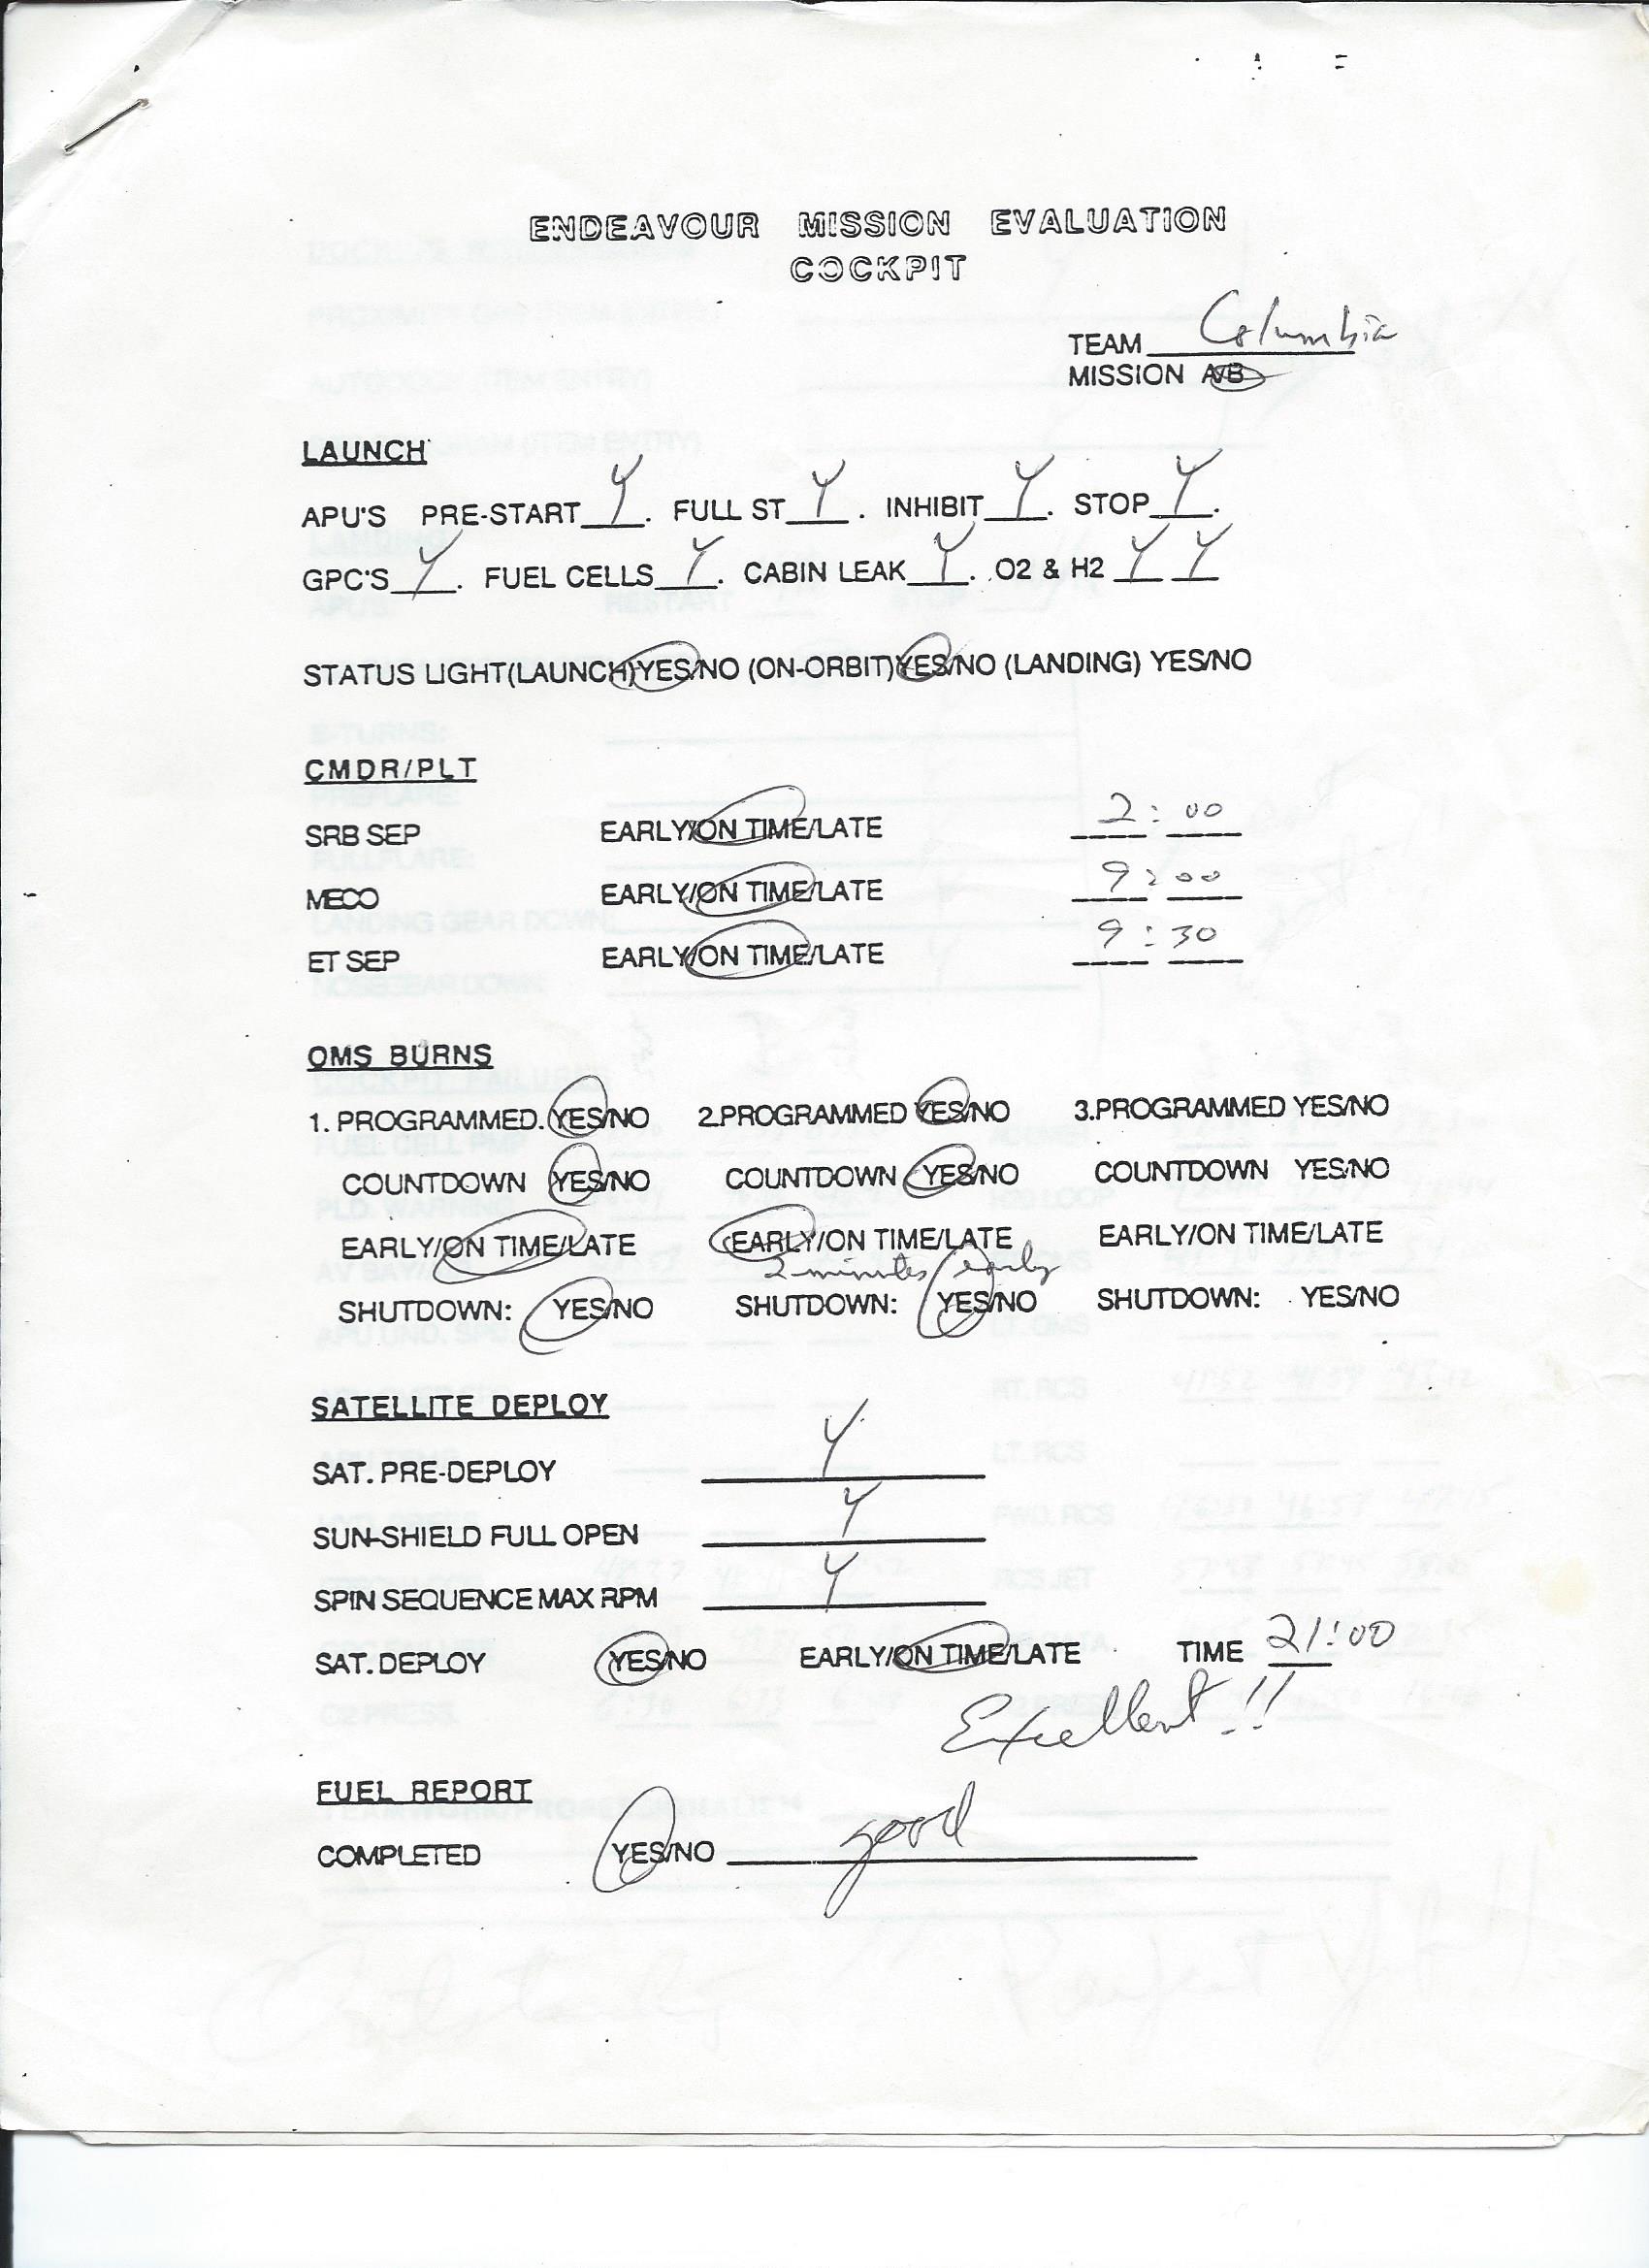 ENDEAVOUR MISSION EVALUATION
COCKPIT
TEAM Columbia
MISSION A/B
LAUNCH
APU'S PRE-START Y. FULL ST Y. INHIBIT Y. STOP Y.
GPC'S Y. FUEL CELLS Y. CABIN LEAK Y. O2 & H2 Y Y
STATUS LIGHT(LAUNCH)YES/NO (ON-ORBIT)YES/NO (LANDING) YES/NO
CMDR/PLT
SRB SEP EARLY/ON TIME/LATE 2:00
MECO EARLY/ON TIME/LATE 9:00
ET SEP EARLY/ON TIME/LATE 9:30
OMS BURNS
1. PROGRAMMED. YES/NO 2.PROGRAMMED YES/NO 3.PROGRAMMED YES/NO
COUNTDOWN YES/NO COUNTDOWN YES/NO COUNTDOWN YES/NO
EARLY/ON TIME/LATE EARLY/ON TIME/LATE EARLY/ON TIME/LATE
2 minutes early
SHUTDOWN: YES/NO SHUTDOWN: YES/NO SHUTDOWN: YES/NO
SATELLITE DEPLOY
SAT. PRE-DEPLOY Y
SUN-SHIELD FULL OPEN Y
SPIN SEQUENCE MAX RPM Y
SAT. DEPLOY YES/NO EARLY/ON TIME/LATE TIME 21:00
Excellent!!
FUEL REPORT
COMPLETED YES/NO good